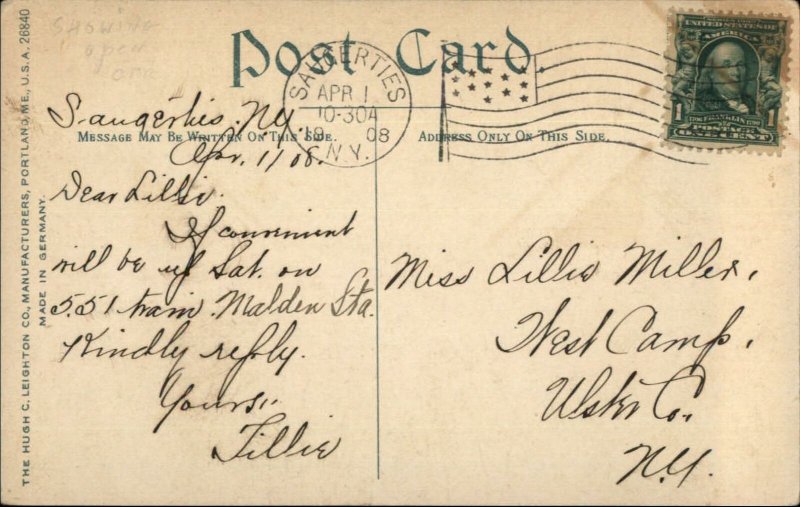 SHOWING
open
Post Card.
SAUGERTIES
APR 1
10-30A
1908
N.Y.
1
UNITED STATES OF AMERICA
FRANKLIN
POSTAGE
ONE CENT
MESSAGE MAY BE WRITTEN ON THIS SIDE.
ADDRESS ONLY ON THIS SIDE.
Saugerties, N.Y.
Apr. 1/08.
Dear Lillie.
If convenient
will be up Sat. on
5.51 train. Malden Sta.
Kindly reply.
Yours,
Tillie
Miss Lillie Miller,
West Camp,
Ulster Co.
N.Y.
THE HUGH C. LEIGHTON CO., MANUFACTURERS, PORTLAND, ME., U.S.A. 26840
MADE IN GERMANY.